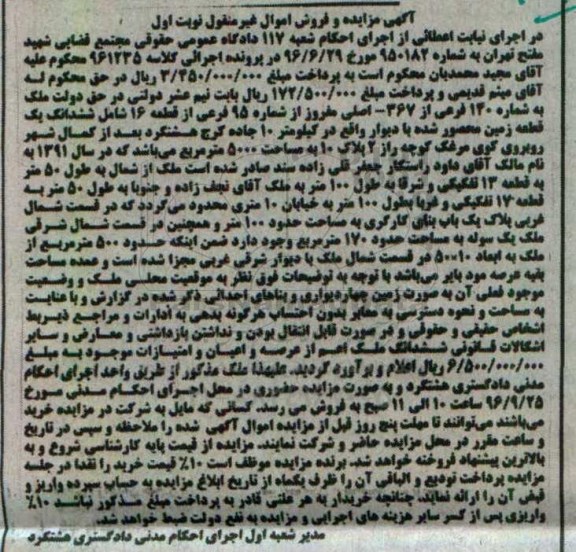 آگهی مزایده و فروش اموال غیرمنقول نوبت اول
در اجرای نیابت اعطائی از اجرای احکام شعبه ۱۱۷ دادگاه عمومی حقوقی مجتمع قضایی شهید
مفتح تهران به شماره ۹۵۰۱۸۲ مورخ ۹۶/۶/۲۹ در پرونده اجرائی کلاسه ۹۶۱۲۳۵ محکوم علیه
آقای مجید محمدیان محکوم است به پرداخت مبلغ ۳/۴۵۰/۰۰۰/۰۰۰ ریال در حق محکوم له
آقای میثم قدیمی و پرداخت مبلغ ۱۷۲/۵۰۰/۰۰۰ ریال بابت نیم عشر دولتی در حق دولت ملک
به شماره ۱۴۰ فرعی از ۳۶۷- اصلی مفروز از شماره ۹۵ فرعی از قطعه ۱۶ شامل ششدانگ یک
قطعه زمین محصور شده با دیوار واقع در کیلومتر ۱۰ جاده کرج هشتگرد بعد از کمال شهر
روبروی کوی مرغک کوچه راز ۲ پلاک ۱۰ به مساحت ۵۰۰۰ مترمربع می‌باشد که در سال ۱۳۹۱ به
نام مالک آقای داود راستکار جعفر قلی زاده سند صادر شده است ملک از شمال به طول ۵۰ متر
به قطعه ۱۳ تفکیکی و شرقا به طول ۱۰۰ متر به ملک آقای نجف زاده و جنوبا به طول ۵۰ متر به
قطعه ۱۷ تفکیکی و غربا بطول ۱۰۰ متر به خیابان ۱۰ متری محدود می‌گردد که در قسمت شمال
غربی پلاک یک باب بنای کارگری به مساحت حدود ۱۰۰ متر و همچنین در قسمت شمال شرقی
ملک یک سوله به مساحت حدود ۱۷۰ مترمربع وجود دارد ضمن اینکه حدود ۵۰۰ مترمربع از
ملک به ابعاد ۱۰×۵۰ در قسمت شمال ملک با دیوار شرقی غربی مجزا شده است و عمده مساحت
بقیه عرصه مود بایر می‌باشد با توجه به توضیحات فوق نظر به موقعیت محلی ملک و وضعیت
موجود فعلی آن به صورت زمین چهاردیواری و بناهای احداثی ذکر شده در گزارش و با عنایت
به مساحت و نحوه دسترسی به معابر بدون احتساب هرگونه بدهی به ادارات و مراجع ذیربط
اشخاص حقیقی و حقوقی و در صورت قابل انتقال بودن و نداشتن بازداشتی و معارفی و سایر
اشکالات قانونی ششدانگ ملک اعم از عرصه و اعیان و امتیازات موجود به مبلغ
۶/۵۰۰/۰۰۰/۰۰۰ ریال اعلام و برآورد گردید. علیهذا ملک مذکور از طریق واحد اجرای احکام
مدنی دادگستری هشتگرد و به صورت مزایده حضوری در محل اجرای احکام مدنی مورخ
۹۶/۹/۲۵ ساعت ۱۰ الی ۱۱ صبح به فروش می رسد. کسانی که مایل به شرکت در مزایده خرید
می‌باشند می‌توانند تا مهلت پنج روز قبل از مزایده اموال آگهی شده را ملاحظه و سپس در تاریخ
و ساعت مقرر در محل مزایده حاضر و شرکت نمایند. مزایده از قیمت پایه کارشناسی شروع و به
بالاترین پیشنهاد فروخته خواهد شد. برنده مزایده موظف است ۱۰٪ قیمت خرید را نقدا در جلسه
مزایده پرداخت تودیع و الباقی آن را ظرف یکماه از تاریخ ابلاغ مزایده به حساب سپرده واریز و
قبض آن را ارائه نماید. چنانچه خریدار به هر علتی قادر به پرداخت مبلغ مذکور نباشد ۱۰٪
واریزی پس از کسر سایر هزینه های اجرایی و مزایده به نفع دولت ضبط خواهد شد.
مدیر شعبه اول اجرای احکام مدنی دادگستری هشتگرد